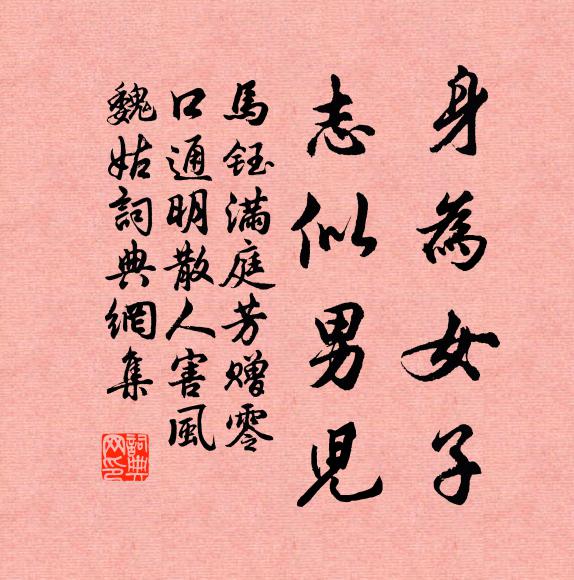 身為女子
志似男兒
馬鈺滿庭芳贈零
口通明散人害風
魏姑詞典網集
詞典网印